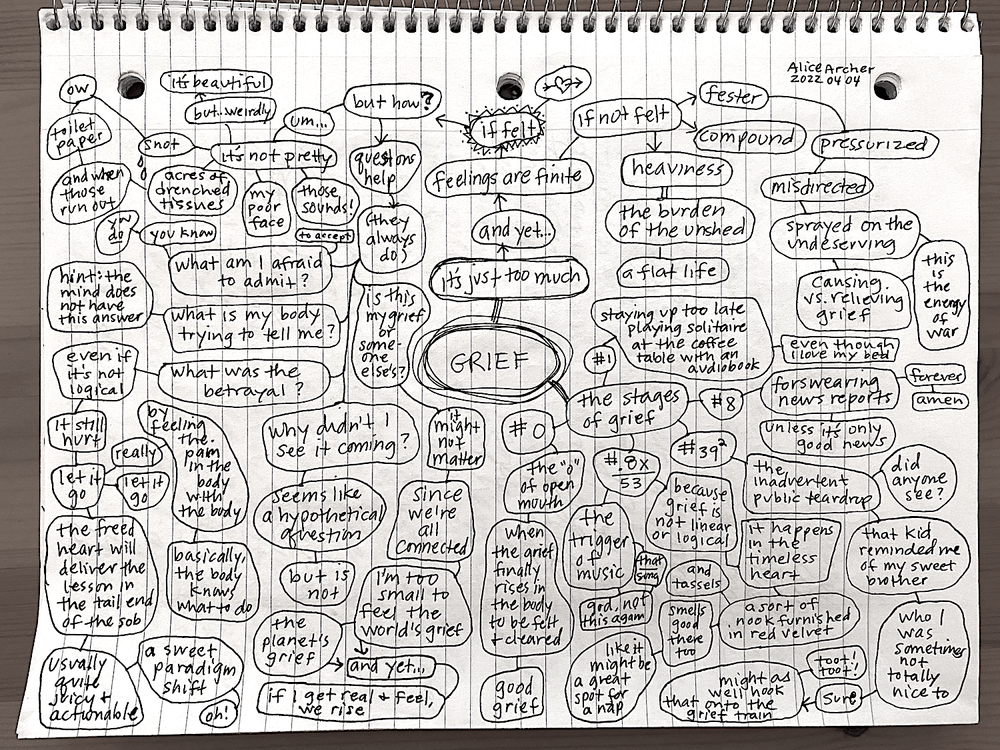 Alice Archer
2022 04 04
GRIEF
it's just too much
and yet...
feelings are finite
if felt
but how?
um...
it's not pretty
but..weirdly
it's beautiful
snot
ow
toilet
paper
and when
those
run out
acres of
drenched
tissues
my
poor
face
those
sounds!
questions
help
(they
always
do)
to accept
what am I afraid
to admit?
you know
yn
do
what is my body
trying to tell me?
hint: the
mind does
not have
this answer
what was the
betrayal?
even if
it's not
logical
it still
hurt
let it
go
really
let it
go
by
feeling
the
pain
in the
body
with
the body
basically,
the body
knows
what to do
the freed
heart will
deliver the
lesson in
the tail end
of the sob
usually
quite
juicy &
actionable
a sweet
paradigm
shift
oh!
is this
my grief
or
some-
one
else's?
it
might
not
matter
since
we're
all
connected
why didn't I
see it coming?
seems like
a hypothetical
question
but is
not
I'm too
small to
feel the
world's grief
the
planet's
grief
and yet...
if I get real & feel,
we rise
if not felt
fester
compound
pressurized
misdirected
sprayed on the
undeserving
causing
vs. relieving
grief
this
is
the
energy
of
war
heaviness
the burden
of the unshed
a flat life
the stages
of grief
#1
staying up too late
playing solitaire
at the coffee
table with an
audiobook
even though
I love my bed
#8
forswearing
news reports
forever
amen
unless it's only
good news
#0
the "o"
of open
mouth
when
the grief
finally
rises in
the body
to be felt
& cleared
good
grief
#.8x
53
the
trigger
of
music
that
song
god, not
this again
#39²
the
inadvertent
public teardrop
did
anyone
see?
that kid
reminded me
of my sweet
brother
who I
was
sometimes
not
totally
nice to
sure
toot!
toot!
might as
well hook
that onto the
grief train
because
grief is
not linear
or logical
it happens
in the
timeless
heart
a sort of
nook furnished
in red velvet
and
tassels
smells
good
there
too
like it
might be
a great
spot for
a nap